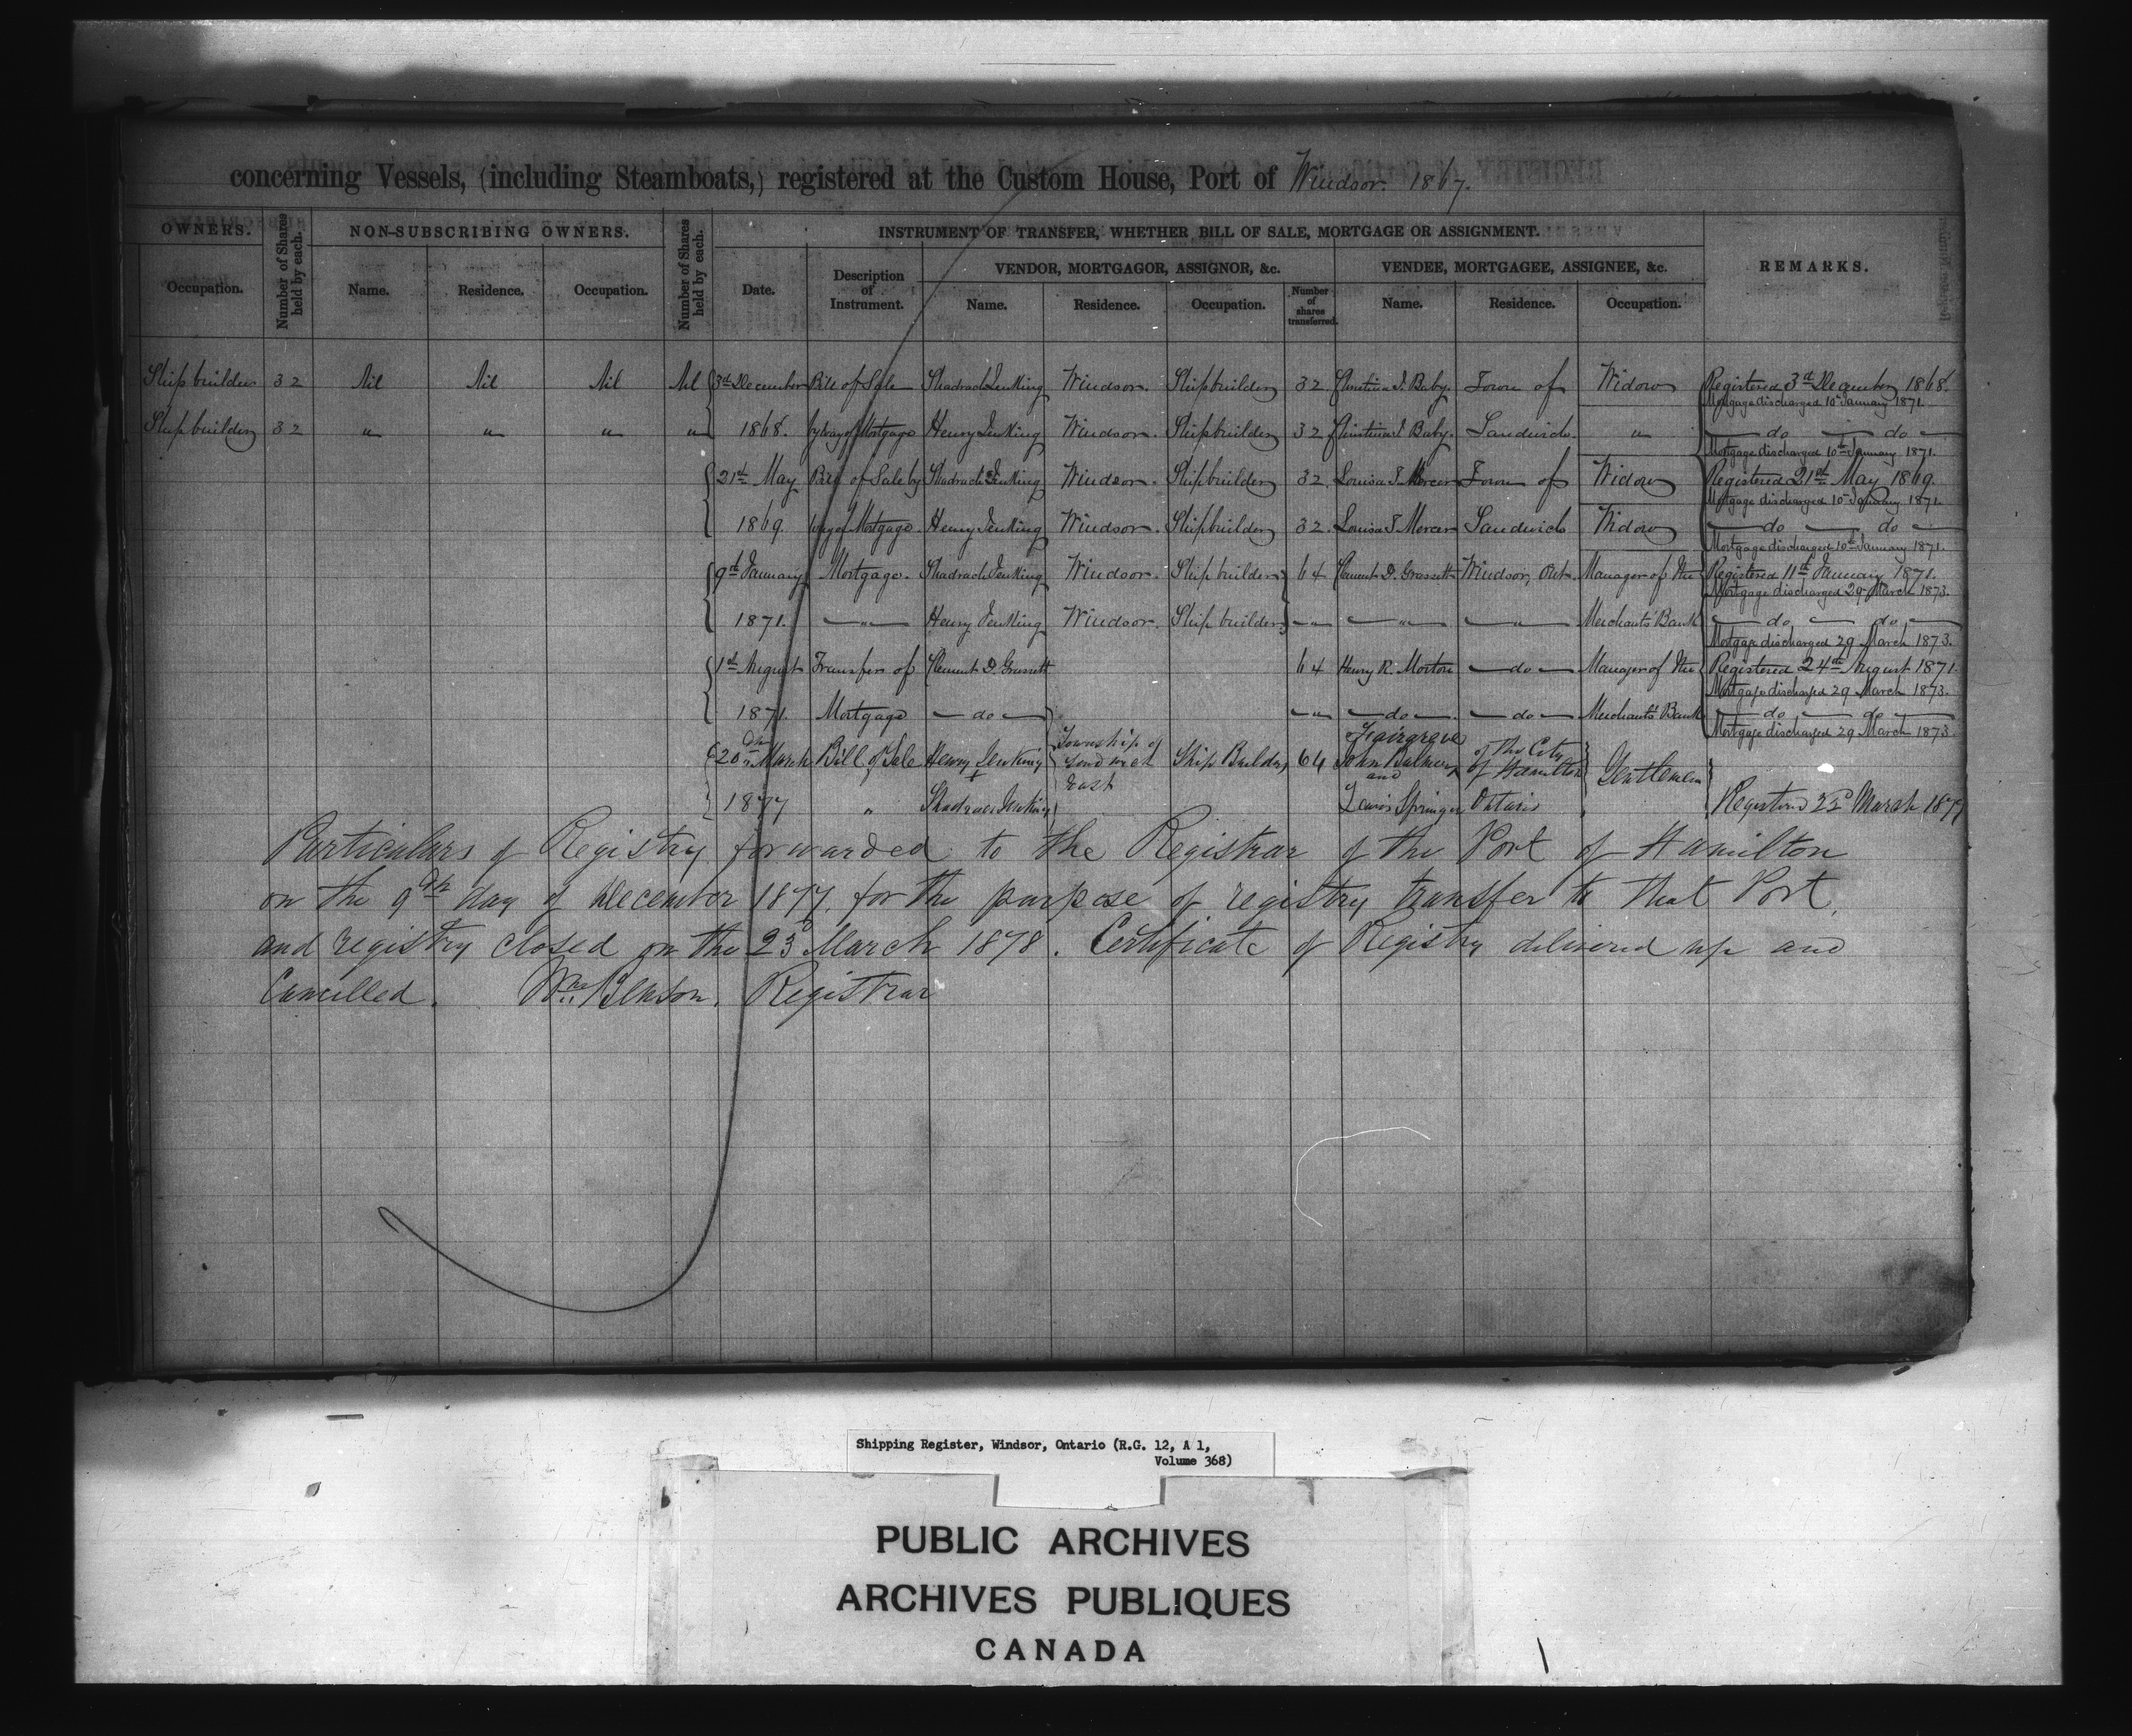 concerning Vessels, (including Steamboats,) registered at the Custom House, Port of Windsor. 1867.
OWNERS. Number of Shares held by each. NON-SUBSCRIBING OWNERS. Number of Shares held by each. INSTRUMENT OF TRANSFER, WHETHER BILL OF SALE, MORTGAGE OR ASSIGNMENT. REMARKS.
VENDOR, MORTGAGOR, ASSIGNOR, &c. VENDEE, MORTGAGEE, ASSIGNEE, &c.
Occupation. Name. Residence. Occupation. Date. Description of Instrument. Name. Residence. Occupation. Number of shares transferred. Name. Residence. Occupation.
Shipbuilder 32 Nil Nil Nil Nil 3rd December Bill of Sale Shadrach Jenking Windsor. Shipbuilder 32 Christina J. Baby. Town of Widow Registered 3rd December 1868.
Mortgage discharged 10th January 1871.
Shipbuilder 32 " " " " 1868. by way of Mortgage Henry Jenking Windsor. Shipbuilder 32 Christina J. Baby. Sandwich. " do do
Mortgage discharged 10th January 1871.
21st May Bill of Sale by Shadrach Jenking Windsor. Shipbuilder 32. Louisa S. Mercer Town of Widow Registered 21st May 1869.
Mortgage discharged 10th January 1871.
1869. way of Mortgage. Henry Jenking Windsor. Shipbuilder 32. Louisa S. Mercer Sandwich Widow do do
Mortgage discharged 10th January 1871.
9th January Mortgage. Shadrach Jenking Windsor. Shipbuilder 64 Clement D. Grassett Windsor, Ont. Manager of the Registered 11th January 1871.
Mortgage discharged 29 March 1873.
1871. " Henry Jenking Windsor. Shipbuilder " " " Merchants' Bank do do
Mortgage discharged 29 March 1873.
1st August Transfer of Clement D. Grassett 64 Henry R. Morton do Manager of the Registered 24th August 1871.
Mortgage discharged 29 March 1873.
1871. Mortgage do " do do Merchants' Bank do do
Mortgage discharged 29 March 1873.
20th March Bill of Sale Henry Jenking + Township of Sandwich East Ship Builder 64 John Balmer Fairgrieve and of the City of Hamilton Gentlemen
1877 " Shadrach Jenking Lewis Springer Ontario Registered 23d March 1877
Particulars of Registry forwarded to the Registrar of the Port of Hamilton
on the 9th day of December 1877, for the purpose of registry transfer to that Port,
and registry closed on the 23d March 1878. Certificate of Registry delivered up and
Cancelled. Wm. Benson, Registrar
Shipping Register, Windsor, Ontario (R.G. 12, A 1,
Volume 368)
PUBLIC ARCHIVES
ARCHIVES PUBLIQUES
CANADA